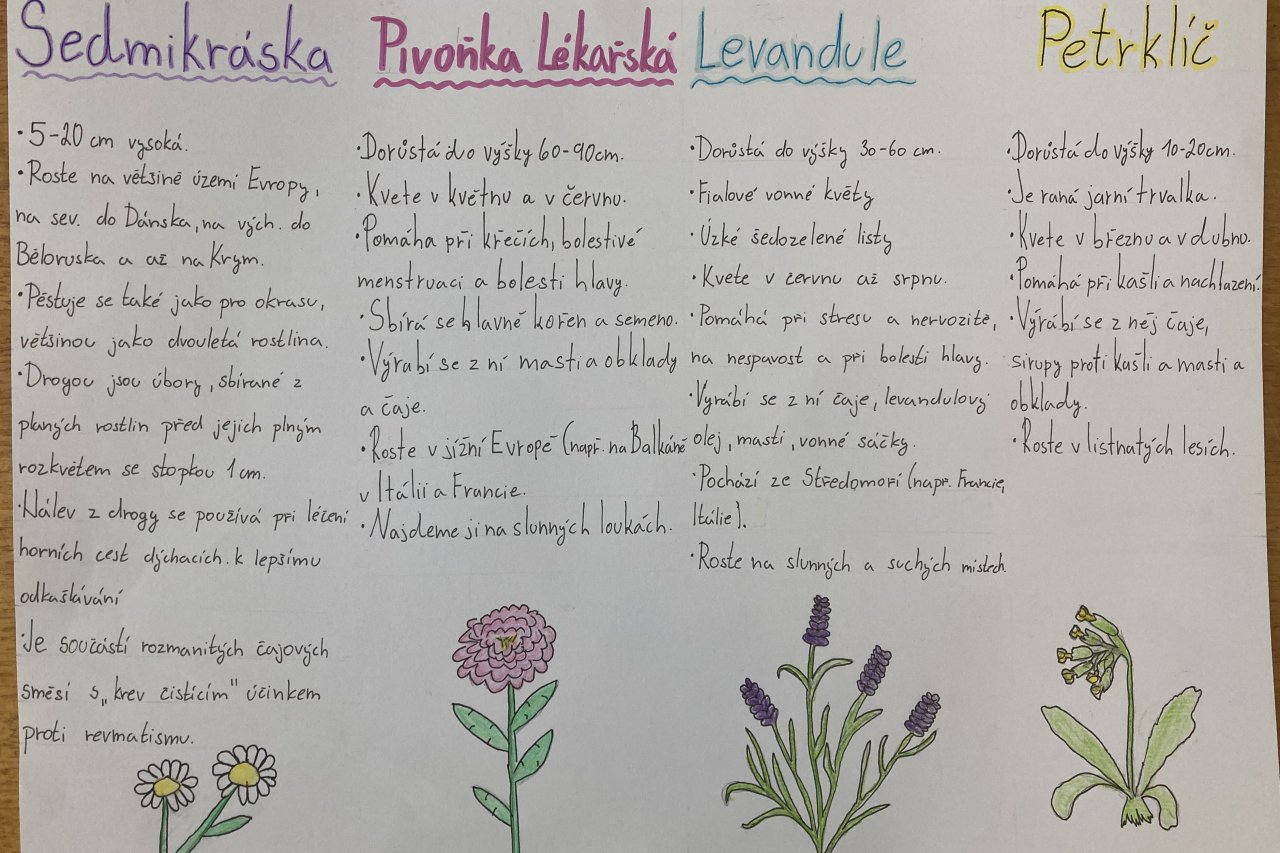 Sedmikráska
• 5-20 cm vysoká.
• Roste na většině území Evropy,
na sev. do Dánska, na vých. do
Běloruska a až na Krym.
• Pěstuje se také jako pro okrasu,
většinou jako dvouletá rostlina.
• Drogou jsou úbory, sbírané z
planých rostlin před jejich plným
rozkvětem se stopkou 1 cm.
• Nálev z drogy se používá při léčení
horních cest dýchacích. k lepšímu
odkašlávání
• Je součástí rozmanitých čajových
směsí s „krev čistícím" účinkem
proti revmatismu.
Pivoňka Lékařská
• Dorůstá do výšky 60-90cm.
• Kvete v květnu a v červnu.
• Pomáha při křečích, bolestivé
menstruaci a bolesti hlavy.
• Sbírá se hlavně kořen a semeno.
• Výrabí se z ní masti a obklady
a čaje.
• Roste v jížní Evropě (např. na Balkáně
v Itálii a Francie.
• Najdeme ji na slunných loukách.
Levandule
• Dorůstá do výšky 30-60 cm.
• Fialové vonné květy
• Úzké šedozelené listy
• Kvete v červnu až srpnu.
• Pomáhá při stresu a nervozitě,
na nespavost a při bolesti hlavy.
• Vyrábí se z ní čaje, levandulový
olej, masti, vonné sáčky.
• Pochází ze Středomoří (např. Francie,
Itálie).
• Roste na slunných a suchých místech.
Petrklíč
• Dorůstá do výšky 10-20cm.
• Je raná jarní trvalka.
• Kvete v březnu a v dubnu.
• Pomáhá při kašli a nachlazení.
• Výrábí se z něj čaje,
sirupy proti kašli a masti a
obklady.
• Roste v listnatých lesích.